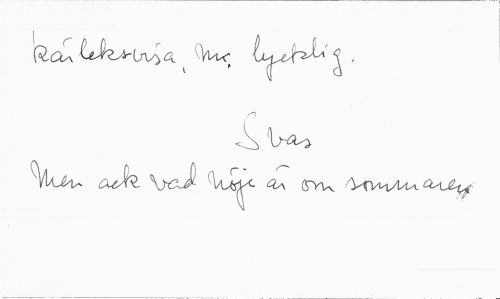 kärleksvisa, mc. lycklig.
Svar
Men ack vad nöje är om sommaren